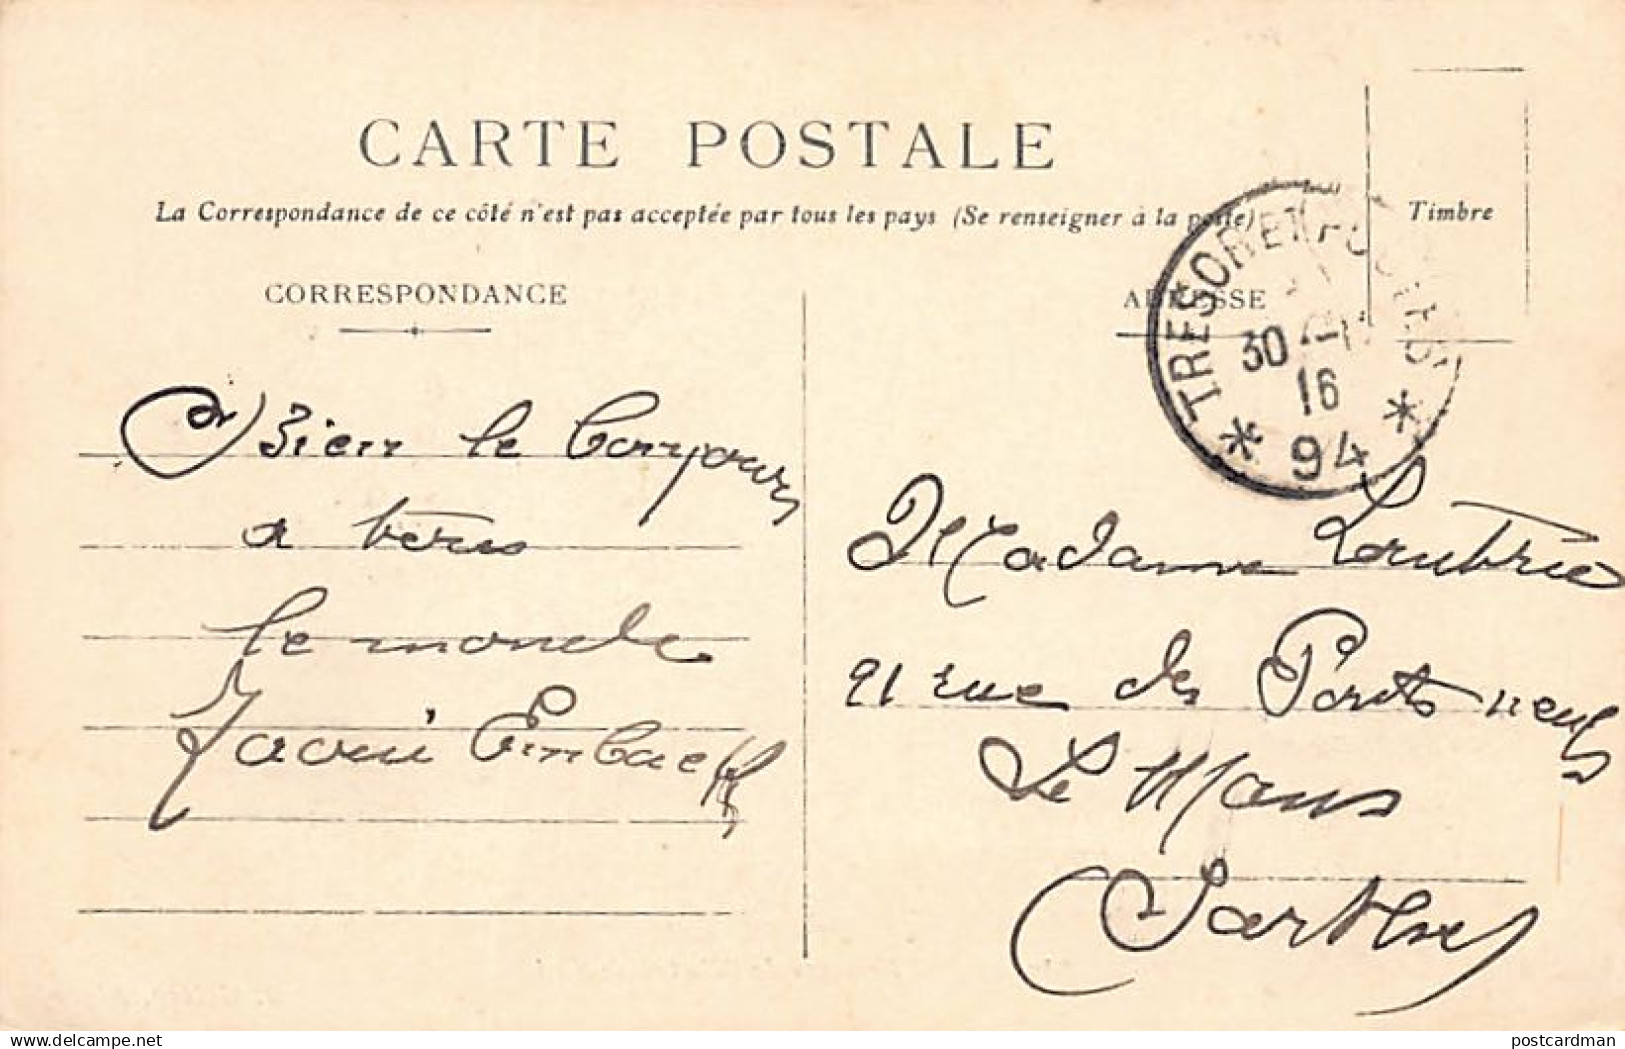 CARTE POSTALE
La Correspondance de ce côté n'est pas acceptée par tous les pays (Se renseigner à la poste)
Timbre
CORRESPONDANCE
ADRESSE
TRESOR ET POSTES
30
16
* 94 *
Bien le bonjour
a
le monde
Madame
21 rue des Ponts neufs
Le Mans
Sarthe
delcampe.net
postcardman